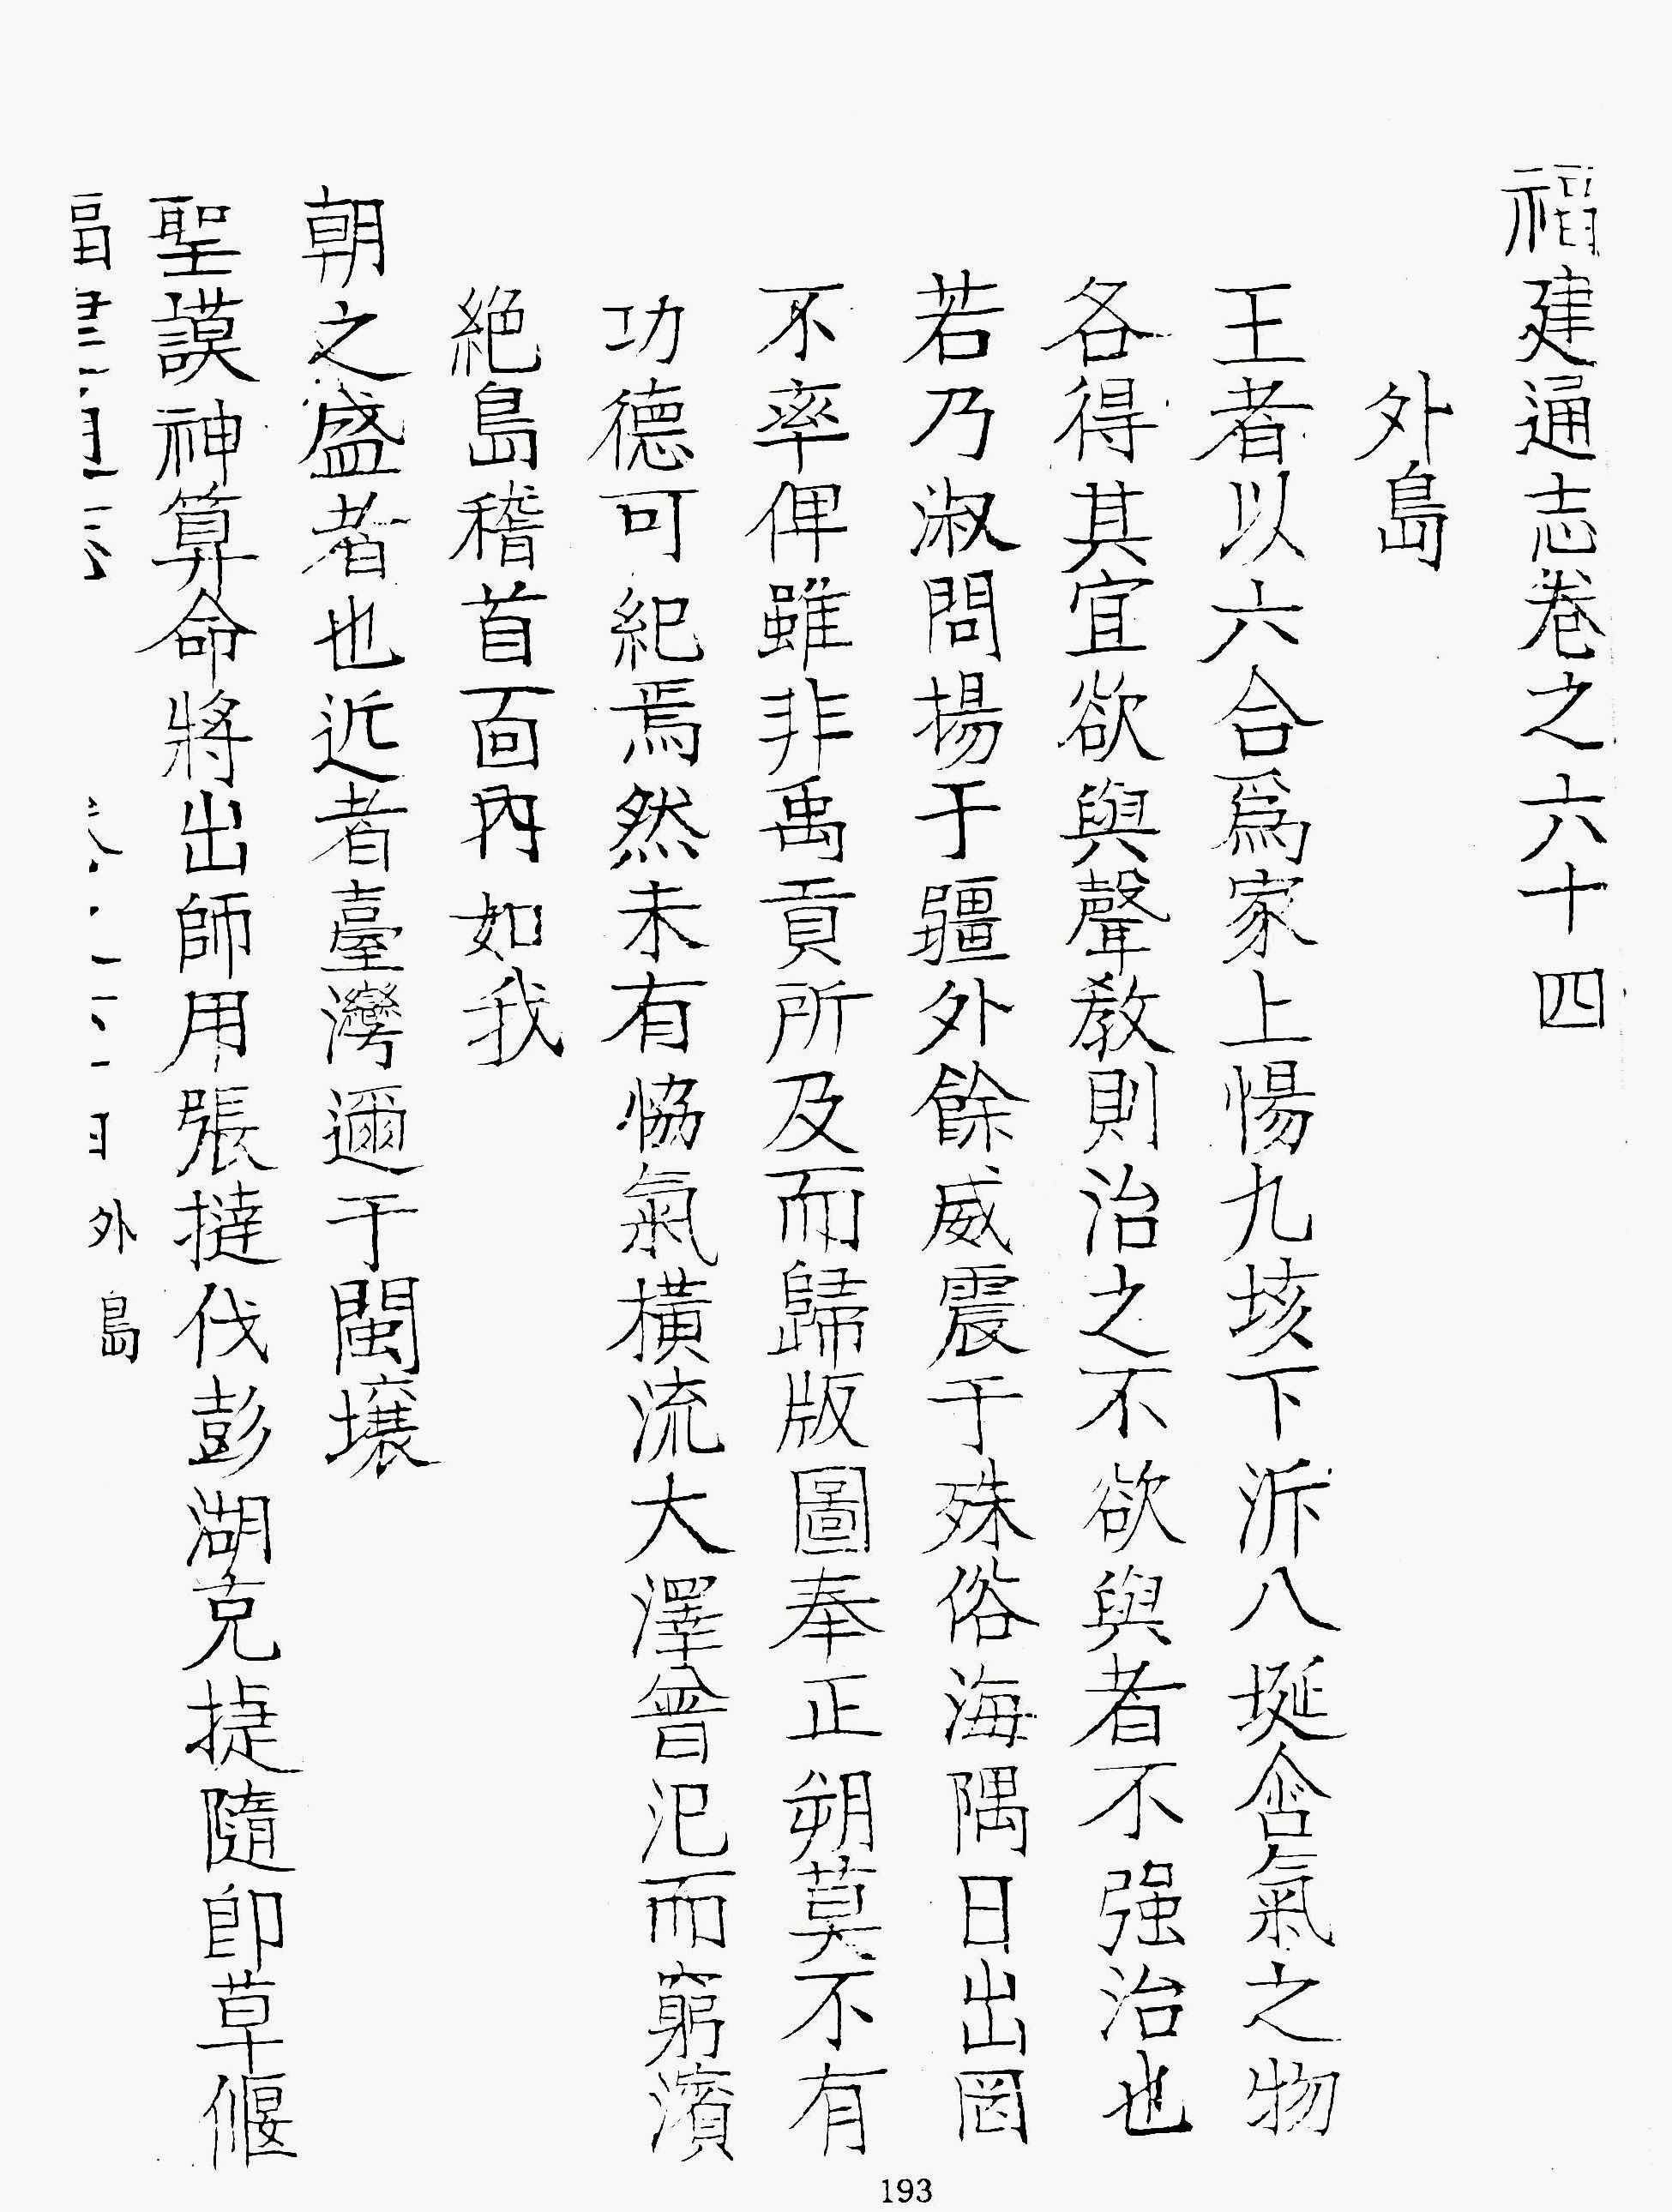 福建通志卷之六十四
外島
王者以六合爲家上愓九垓下泝八埏含氣之物
各得其宜欲與聲教則治之不欲與者不强治也
若乃淑問揚于疆外餘威震于殊俗海隅日出罔
不率俾雖非禹貢所及而歸版圖奉正朔莫不有
功德可紀焉然未有恊氣橫流大澤曾氾而窮濱
絶島稽首面內如我
朝之盛者也近者臺灣邇于閩壤
聖謨神算命將出師用張撻伐彭湖克捷隨卽草偃
外島
193